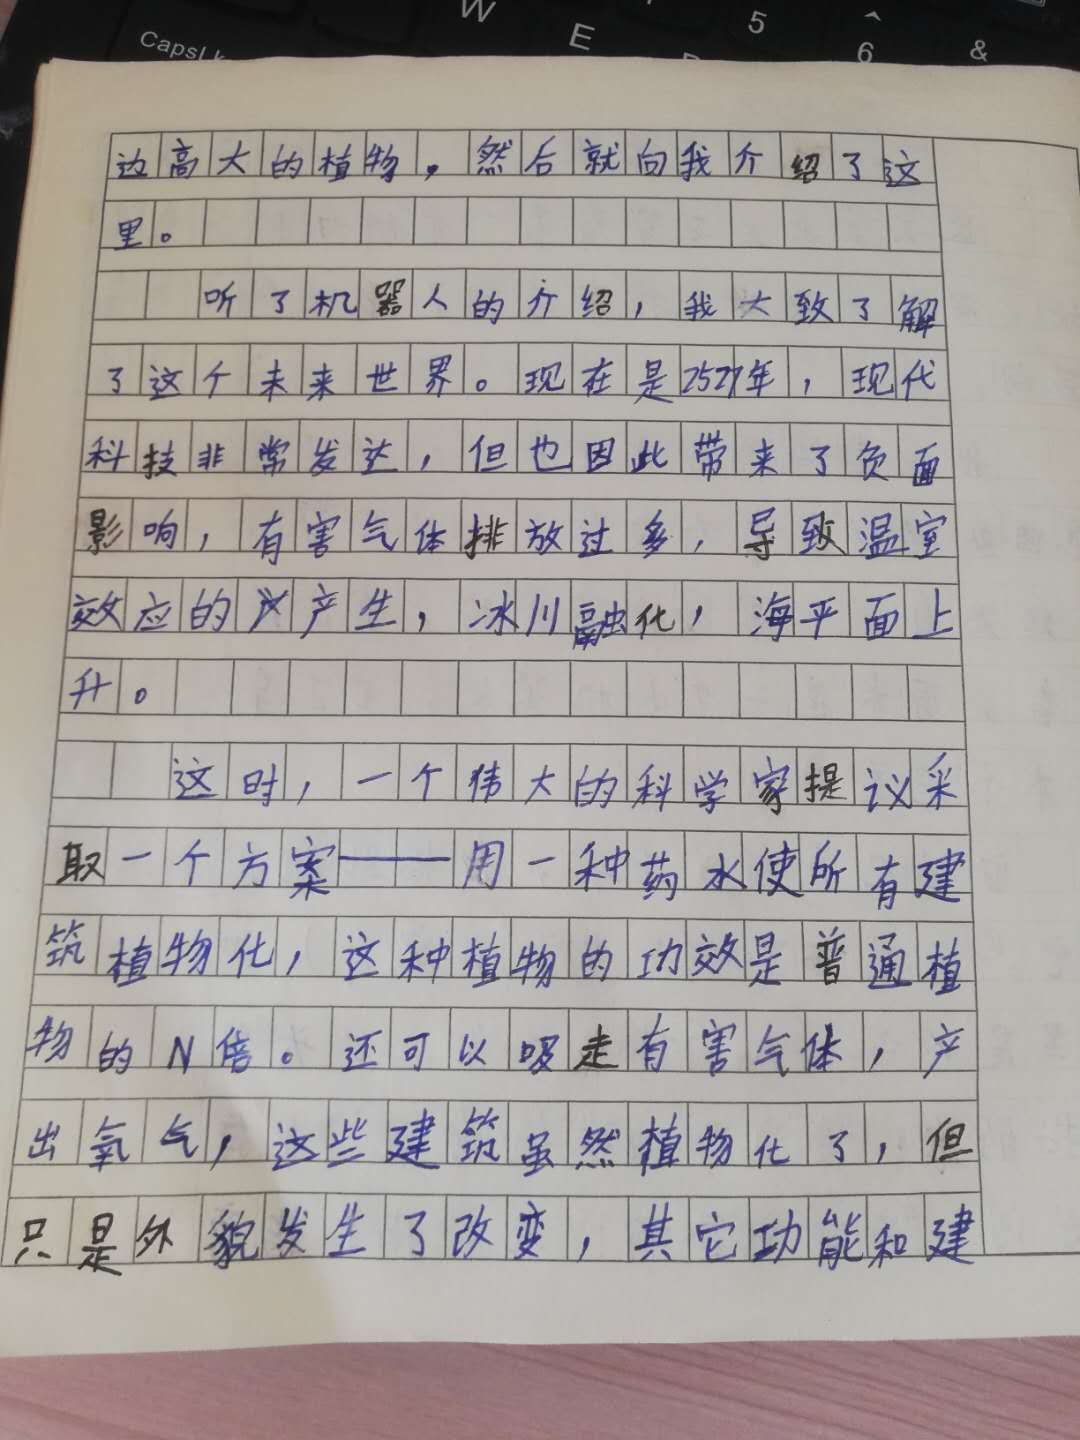 CapsLk W E 5 ^ 6 &
边高大的植物，然后就向我介绍了这
里。
听了机器人的介绍，我大致了解
了这个未来世界。现在是2521年，现代
科技非常发达，但也因此带来了负面
影响，有害气体排放过多，导致温室
效应的产生，冰川融化，海平面上
升。
这时，一个伟大的科学家提议采
取一个方案——用一种药水使所有建
筑植物化，这种植物的功效是普通植
物的N倍。还可以吸走有害气体，产
出氧气，这些建筑虽然植物化了，但
只是外貌发生了改变，其它功能和建